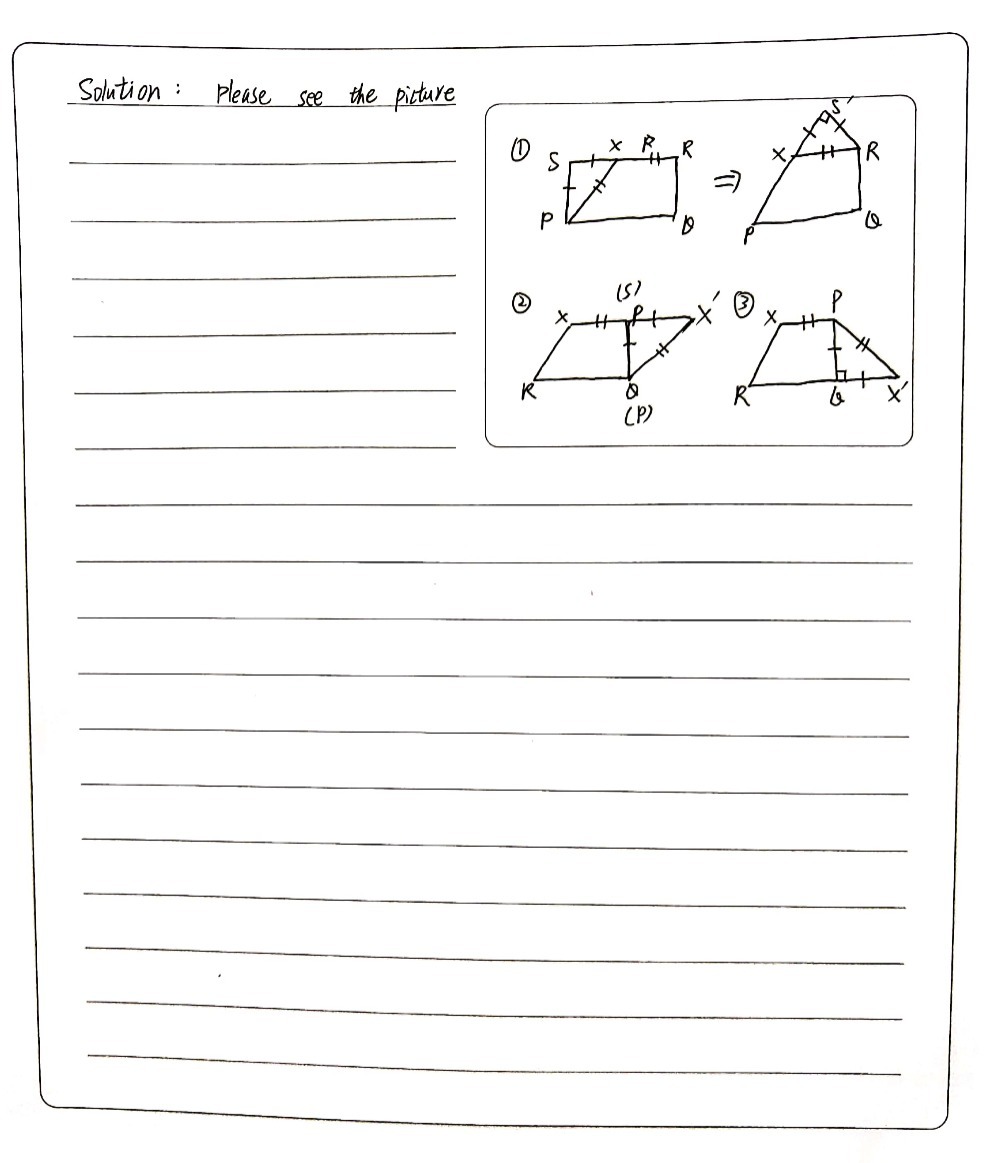 Solution : Please see the picture
① S X R R P Q ⇒ S' X R P Q
② X (S) P X' R Q (P)
③ X P R Q X'